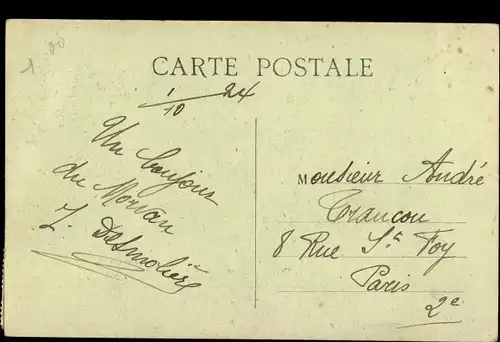 1 00
CARTE POSTALE
1/10 24
Un bonjour
du Morvan
Monsieur André
Trancou
8 Rue St Foy
Paris
2e